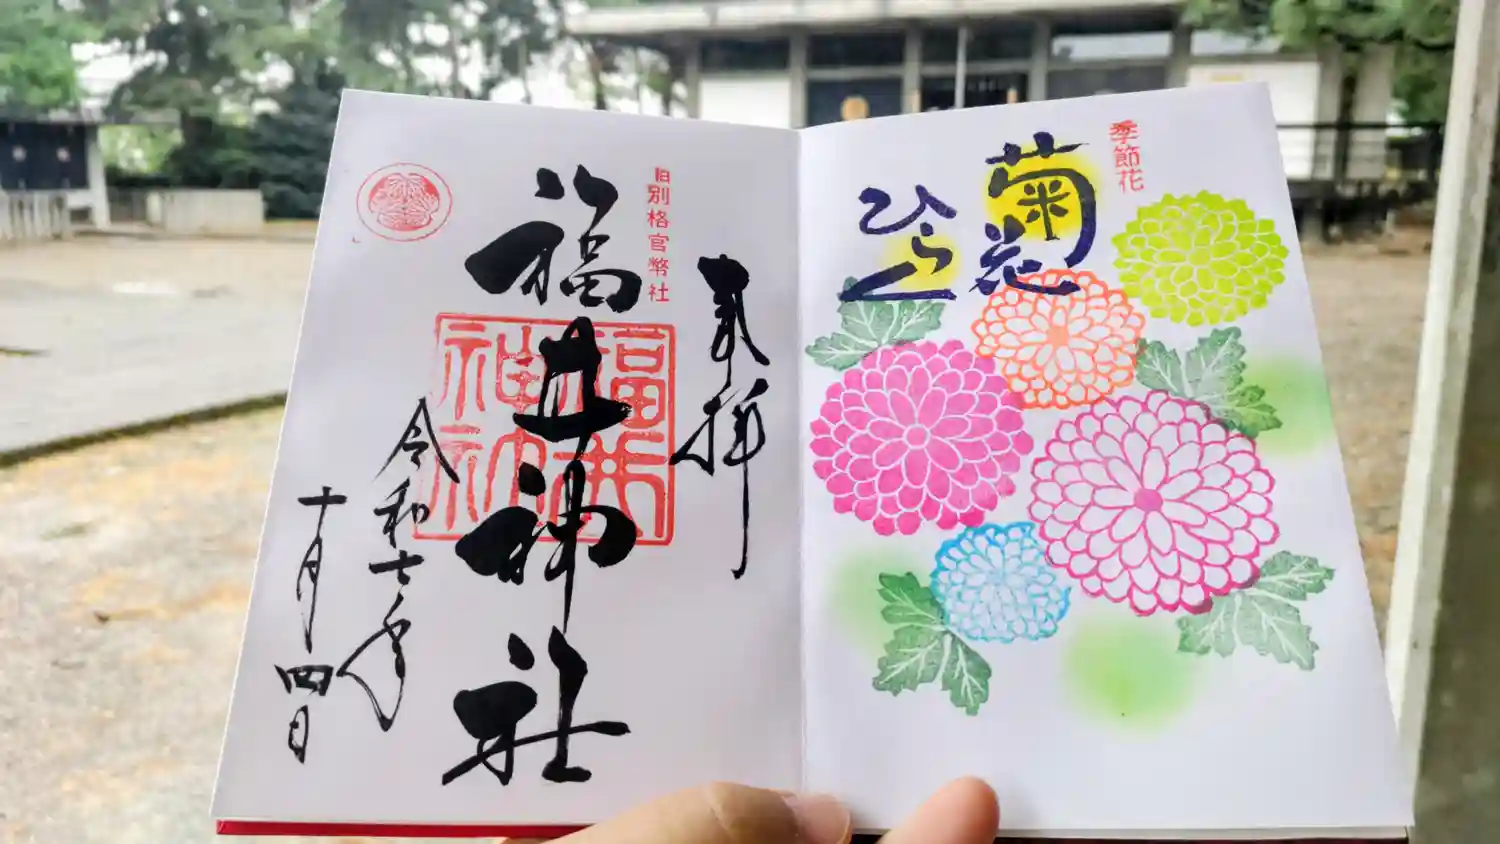 季節花
菊花
ひらく
奉拝
旧別格官幣社
福井神社
福井神社
令和七年
十月四日